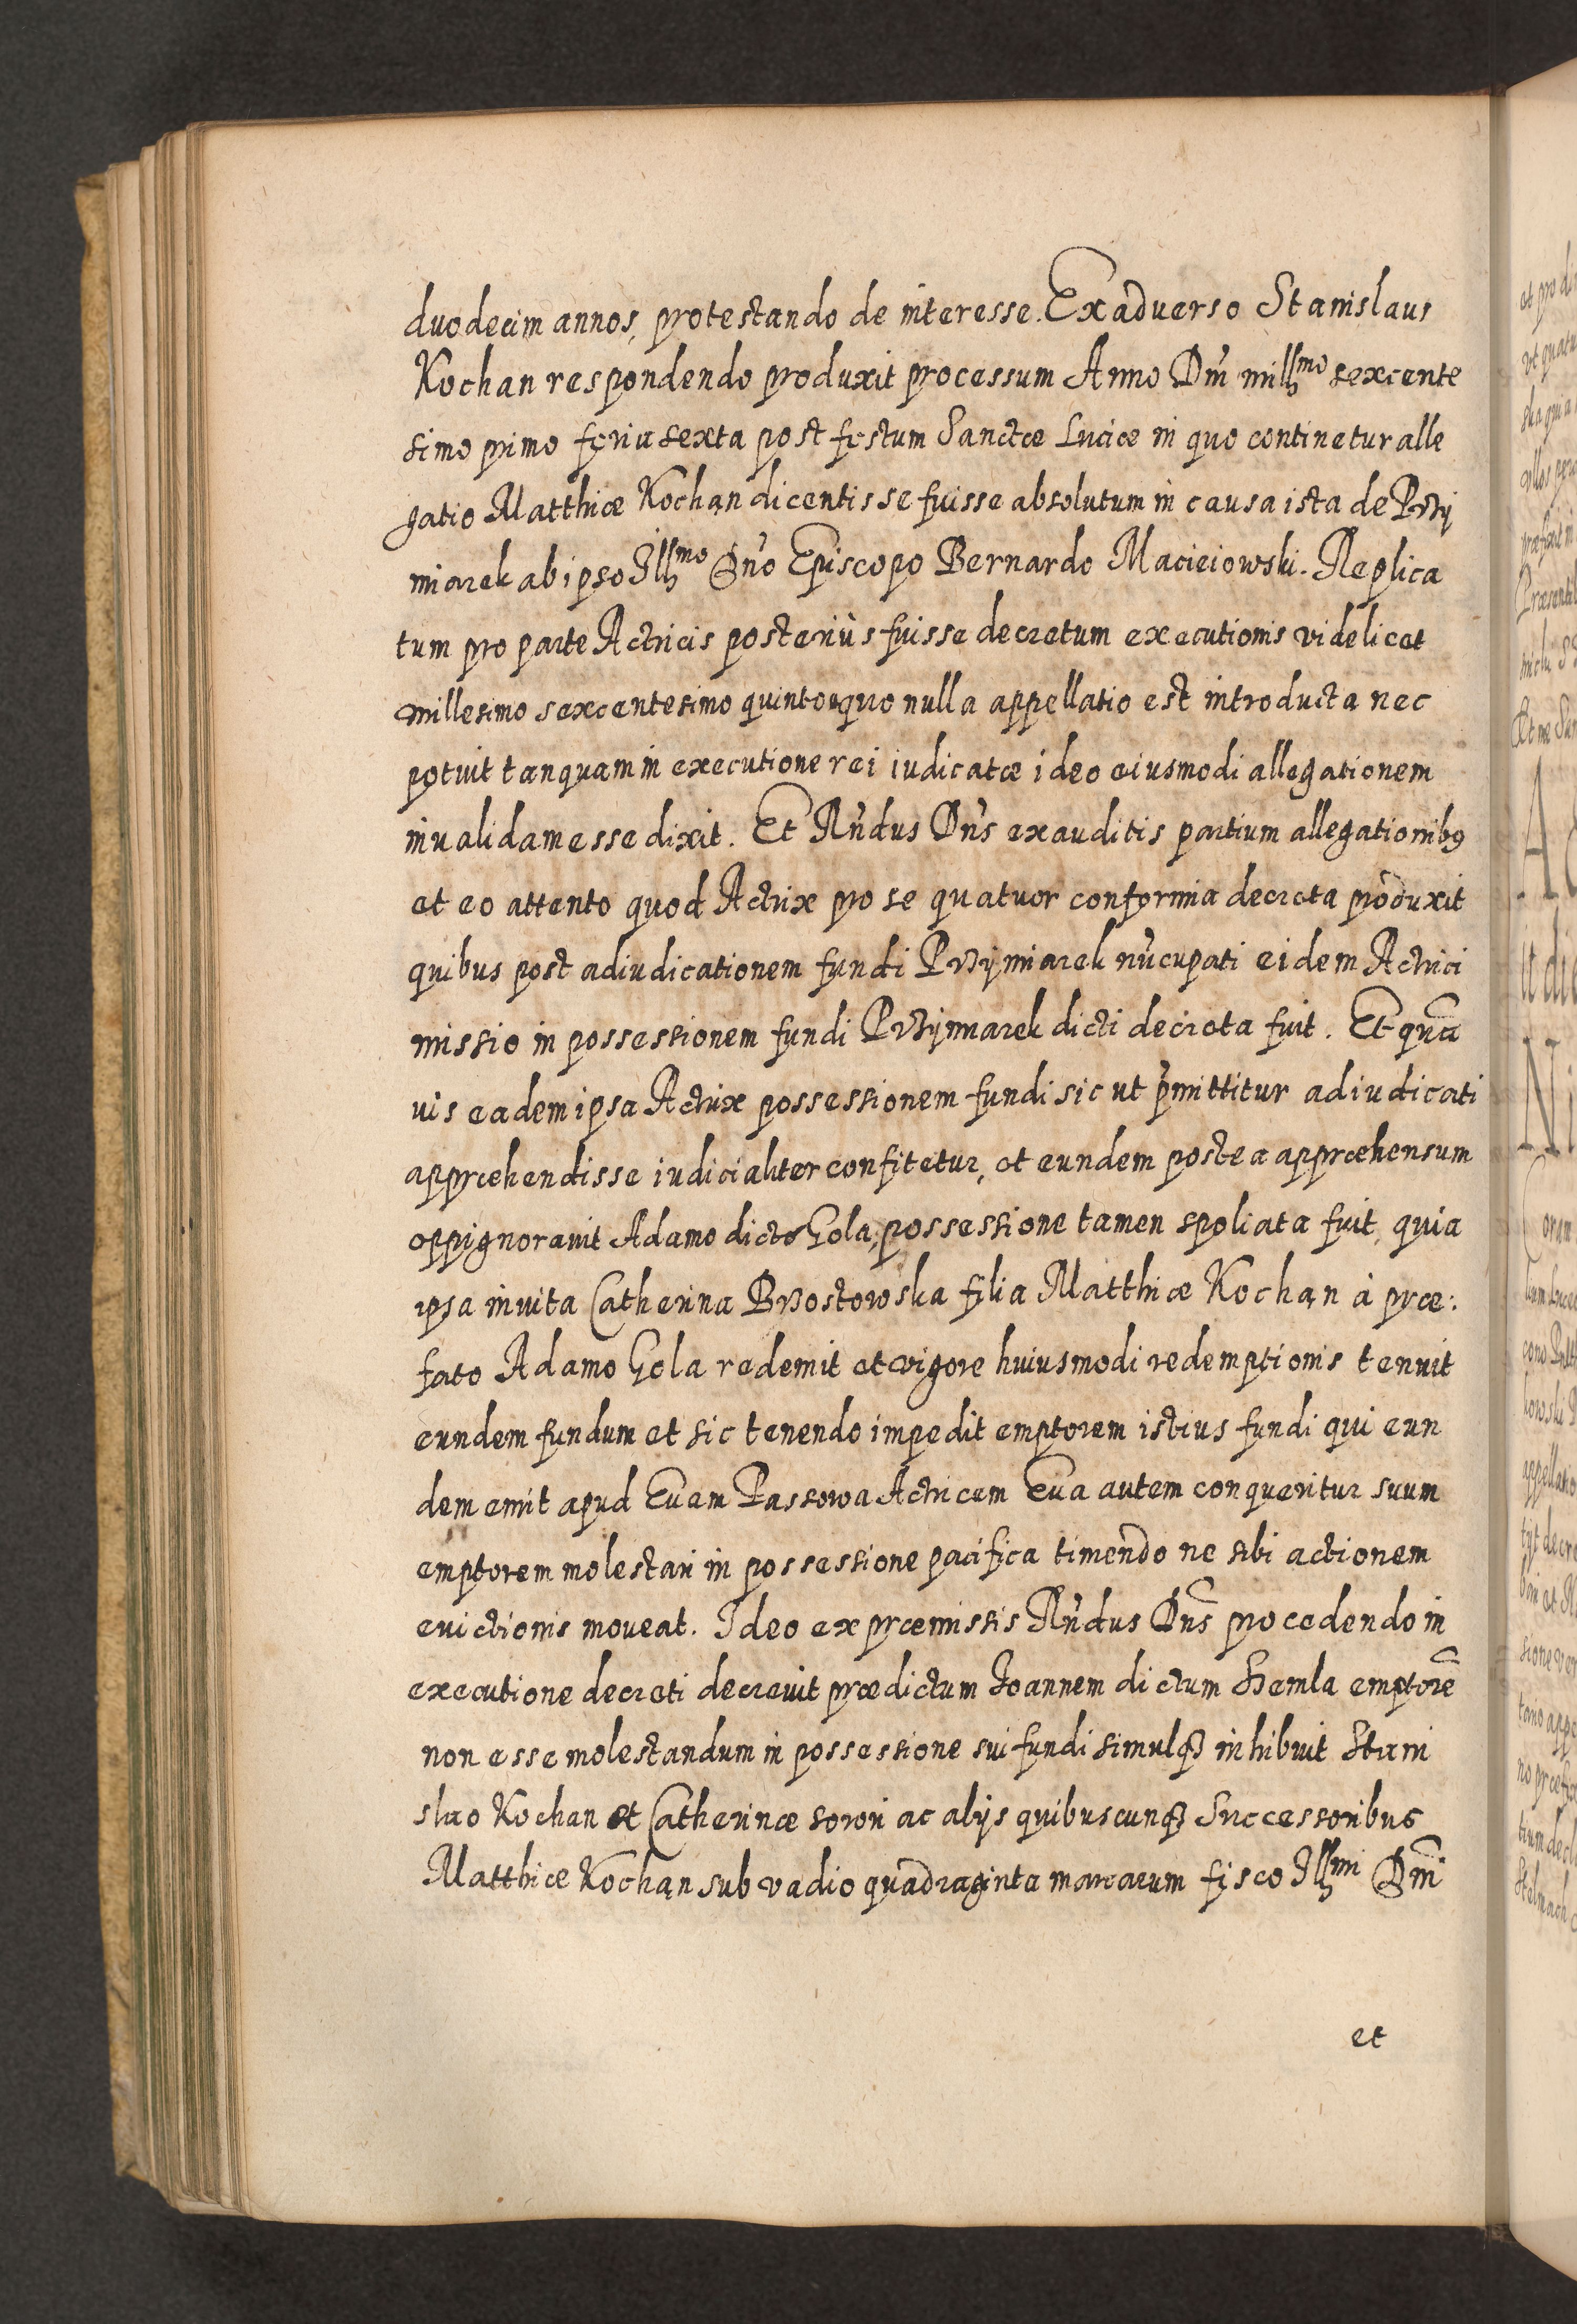 duodecim annos, protestando de interesse. Ex aduerso Stanislaus
Kochan respondendo produxit processum Anno Dm̃ mill̃mo sexcente
simo primo feria sexta post festum Sanctæ Luciæ in quo continetur alle
gatio Matthiæ Kochan dicentis se fuisse absolutum in causa ista de Przÿ
miarek ab ipso Ill̃mo Dño Episcopo Bernardo Macieiowski. Replica
tum pro parte Actricis posteriùs fuisse decretum executionis videlicet
millesimo sexcentesimo quinto a quo nulla appellatio est introducta nec
potuit tanquam in executione rei iudicatæ ideo eiusmodi allegationem
inualidam esse dixit. Et Rñdus Dñs exauditis partium allegationibꝯ
et eo attento quod Actrix pro se quatuor conformia decreta produxit
quibus post adiudicationem fundi Przÿmiarek nũcupati eidem Actrici
missio in possessionem fundi Przÿmiarek dicti decreta fuit. Et quã
uis eadem ipsa Actrix possessionem fundi sic ut p̃mittitur adiudicati
appræhendisse iudicialiter confitetur, et eundem postea appræhensum
oppignorauit Adamo dicto Gola, possessione tamen spoliata fuit, quia
ipsa inuita Catherina Brzostowska filia Matthiæ Kochan à præ:
fato Adamo Gola redemit et vigore huiusmodi redemptionis tenuit
eundem fundum et sic tenendo impedit emptorem istius fundi qui eun
dem emit apud Euam Passowa Actricem Eua autem conqueritur suum
emptorem molestari in possessione pacifica timendo ne sibi actionem
euictionis moueat. Ideo ex præmissis Rñdus Dñs procedendo in
executione decreti decreuit prædictum Joannem dictum Szemla emptorẽ
non esse molestandum in possessione sui fundi simulqꝫ inhibuit Stani
slao Kochan et Catherinæ sorori ac alijs quibuscunqꝫ Successoribus
Matthiæ Kochan sub vadio quadraginta marcarum fisco Ill̃mi Dñi
et